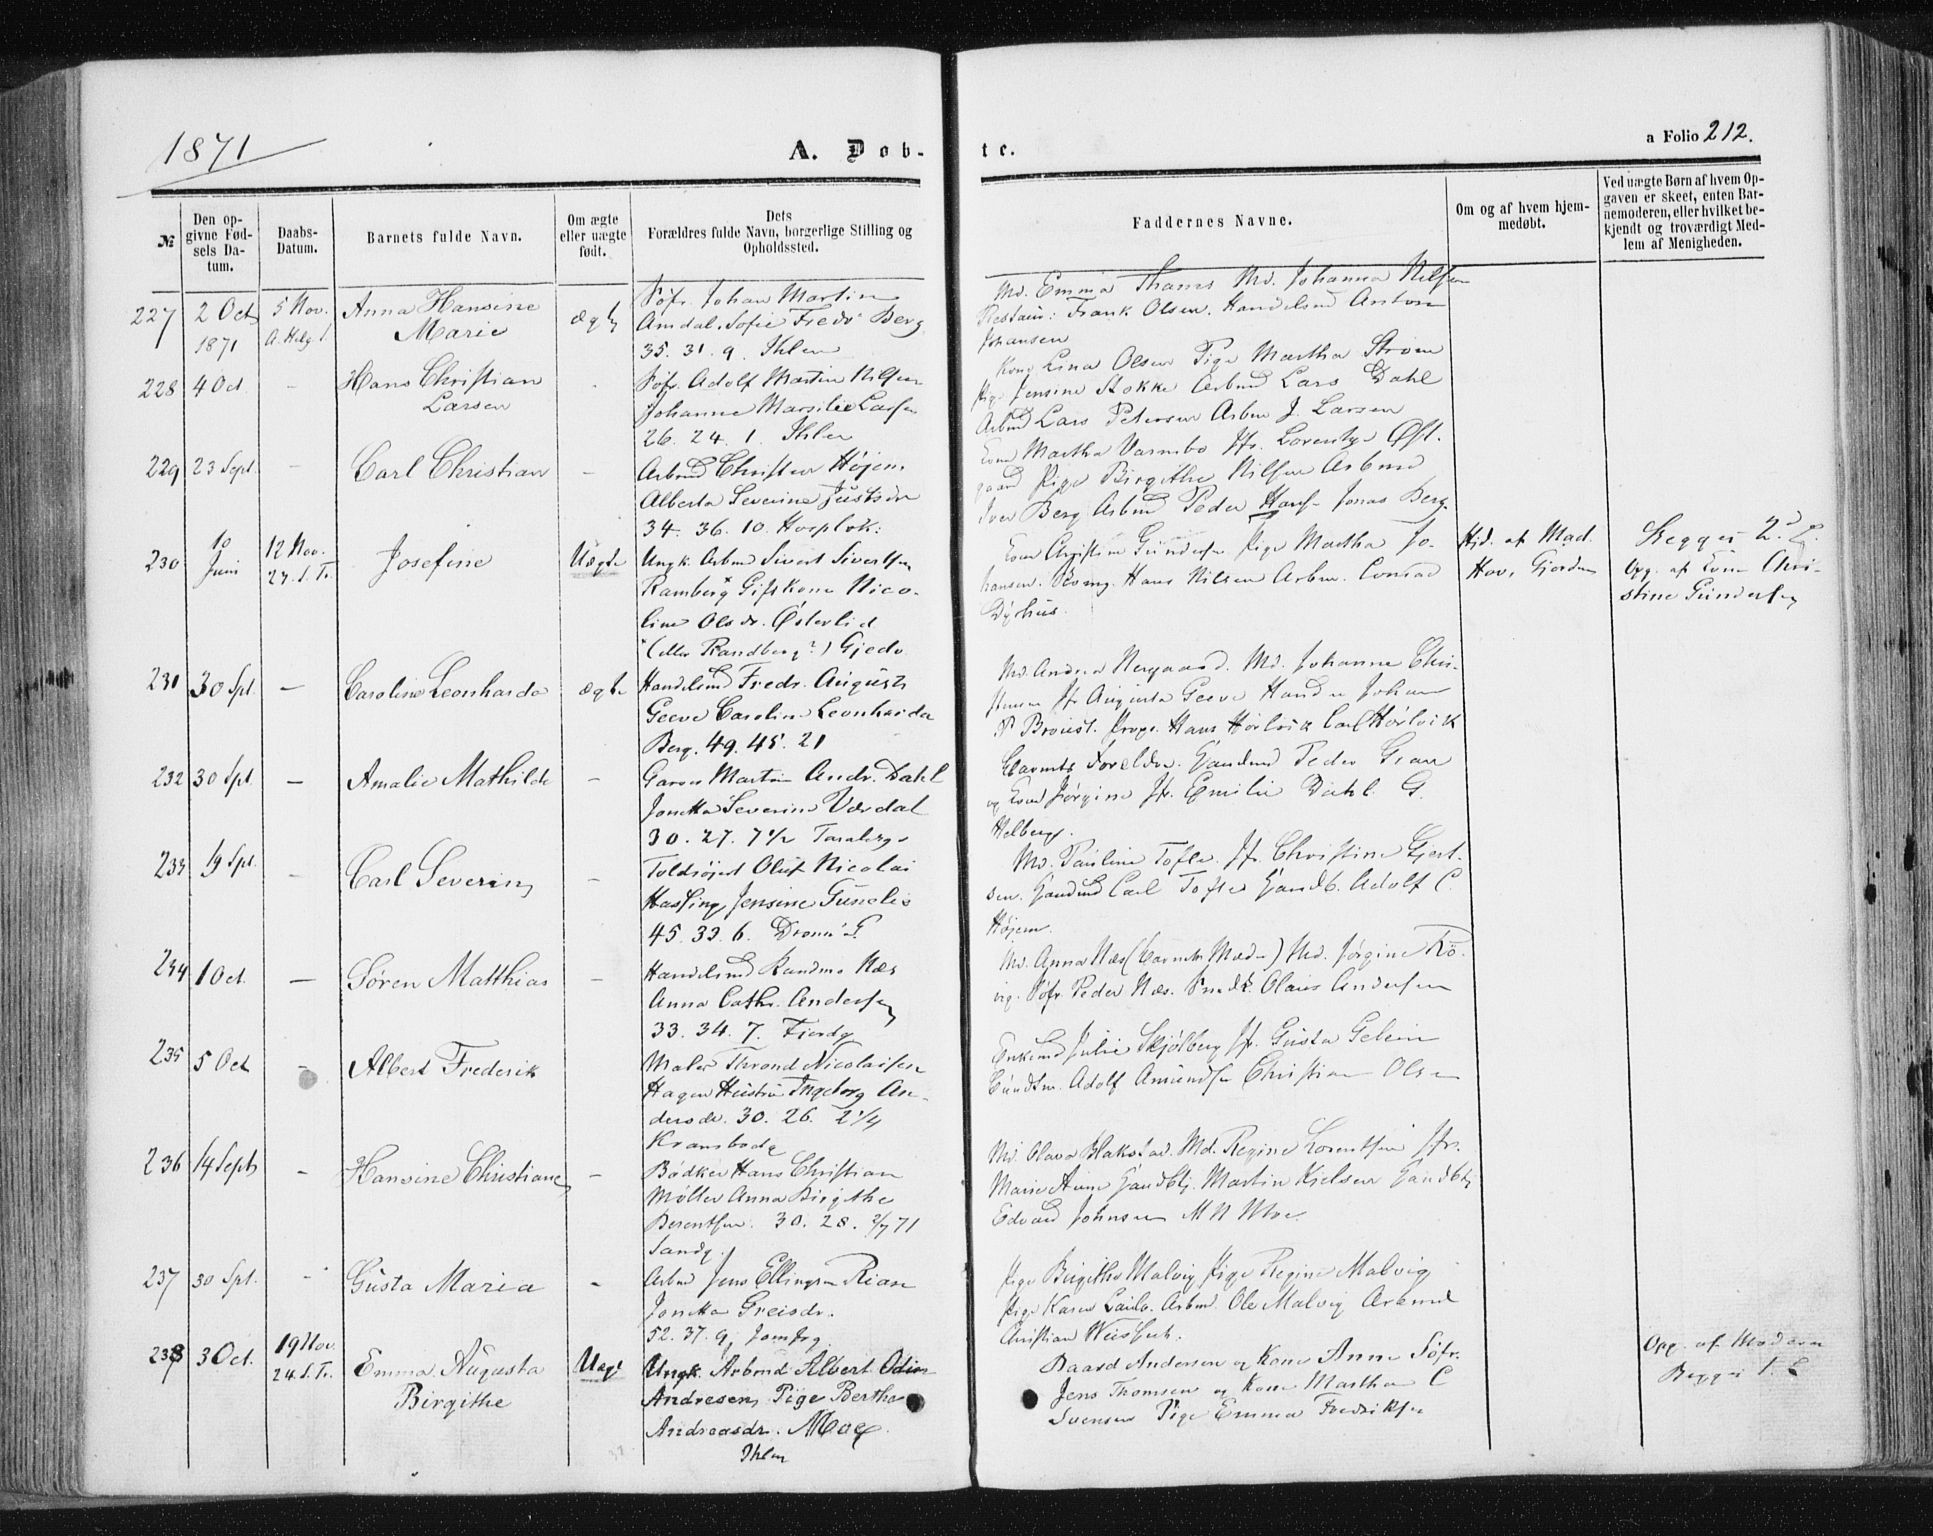 1871
A. Døb-
te.
a Folio 212.
№
Den op-
givne Fød-
sels Da-
tum.
Daabs-
Datum.
Barnets fulde Navn.
Om ægte
eller uægte
født.
Dets
Forældres fulde Navn, borgerlige Stilling og
Opholdssted.
Faddernes Navne.
Om og af hvem hjem-
medøbt.
Ved uægte Børn af hvem Op-
gaven er skeet, enten Bar-
nemoderen, eller hvilket be-
kjendt og troværdigt Med-
lem af Menigheden.
227
2 Oct
1871
5 Nov.
A. Helg.
Anna Hansine
Marie
ægt
Søfr. Johan Martin
Amdal, Sofie Fredr Berg
35. 31. 9. Ihlen
Md. Emma Thams Md. Johanna Nilsen
Frank Olsen. Handelsmd Anton
Johansen
228
4 Oct
-
Hans Christian
Larsen
-
Søfr. Adolf Martin Nilsen
Johanne Marsilie Larsen
26. 24. 1. Ihlen
Kone Lina Olsen Pige Martha Strøm
Pige Jensine Stokke Arbmd Lars Dahl
Arbmd Lars Petersen Arbm J. Larsen
229
23 Sept.
-
Carl Christian
-
Arbmd Christian Højem
Alberta Severine Justsdr
34. 36. 10. Hospløk:
Kone Martha Varmbo Jfr. Lorentze Øst-
gaard Pige Birgithe Nilsen Arbmd
Iver Berg Arbmd Peder Hans Jonas Berg
230
10
Juni
12 Nov.
23. S. Tr.
Josefine
Uægte
Ungk. Arbmd Sivert Sivertsen
Ramberg* Giftkone Nico-
line Olsdr. Østerlid
*(eller Randberg?) Gjedv.
Kone Christine Gundersen Pige Martha Jo-
hansen. Hans Nilsen Arbm. Conrad
Dyrhus.
Hjd. af Mad.
Hov, Gjorden
Begges 2. L.
Opg. af Kone Chri-
stine Gundersen
231
30 Spt.
-
Caroline Leonharda
ægte
Handelsmd Fredr. August
Geeve Caroline Leonharda
Berg. 49. 45. 21
Md. Andrea Nergaard. Md. Johanne Chri-
stensen Jfr Augusta Geeve Handm Johan
P Broust. Hans Hørlvik Carl Hørlvik
232
30 Spt
-
Amalie Mathilde
-
Garver Martin Andr. Dahl
Jonetta Severine Værdal
30. 27. 7 1/2
Barnets Forældre. Gaardmd Peder Gran
og Kone Jørgine Jfr. Emilie Dahl. G.
Helberg.
233
19 Spt.
-
Carl Severin
-
Toldrojert Oluf Nicolai
Hassing, Jensine
45. 33. 6. Dronn G.
Md. Pauline Tofte. Jfr. Christine Gjert-
sen. Carl Tofte Adolf C.
Højem.
234
1 Oct.
-
Søren Matthias
-
Handelsmd Næs
Anna Cathr. Andersen
33. 34. 7. Fjordg
Md. Anna Næs (Barnets Moder) Md. Jørgine Rø-
vig. Søfr. Peder Næs. Olaus Andersen
235
5 Oct
-
Albert Frederik
Maler Thrond Nicolaisen
Hagen Hustru Ingeborg An-
dersdr. 30. 26. 2 1/4
Kransbode
Enkemd Julie Skjølberg Jfr. Gusta Gelein
Adolf Amundsen Christian Olsen
236
14 Septb
-
Hansine Christiane
-
Bødker Hans Christian
Møller Anna Birgithe
Berentsen. 30. 28. 2/7 71
Sandg.
Md. Olava Blakstad. Md. Regine Lorentsen Jfr.
Marie Martin Kjelsen
Edvard Johnsen M N Moe.
237
30 Spt.
-
Gusta Maria
-
Arbmd Jens Ellingsen Rian
Jonetta Greisdr.
52. 37. 9, Jomfrg
Pige Birgitha Malvig Pige Regine Malvig
Pige Karen Arbmd. Ole Malvig Arbmd
Christian
238
3 Oct.
19 Nov.
24. S. Tr.
Emma Augusta
Birgithe
Uægt
Ungk. Arbmd Albert Odin
Andresen, Pige Bertha
Andreasdr. Moe
Ihlen
Baard Andersen og Kone Anne Søfr.
Jens Thomsen og Kone Martha C
Svensen Pige Emma Fredriksen
Opg. af Moderen
Begges 1. L